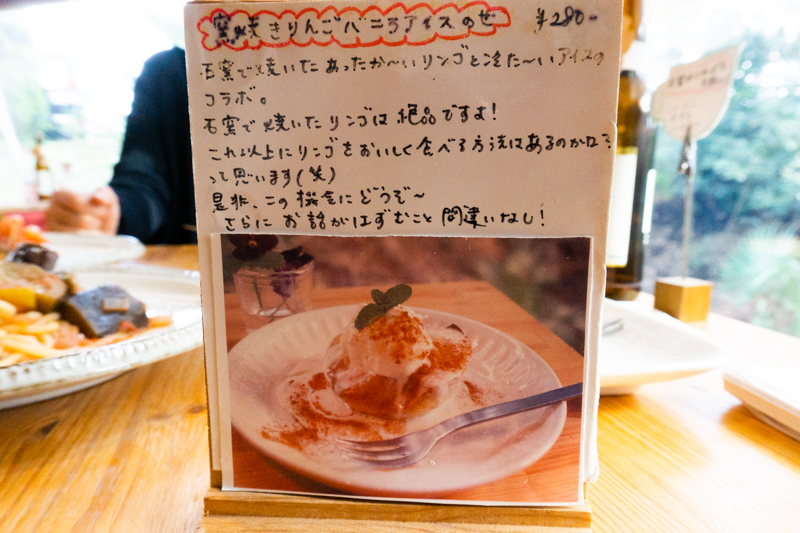 窯焼きりんごバニラアイスのせ ¥280-
石窯で焼いたあったか〜いリンゴと冷た〜いアイスの
コラボ。
石窯で焼いたリンゴは絶品ですよ!
これ以上にリンゴをおいしく食べる方法はあるのかな?
って思います(笑)
是非、この機会にどうぞ〜
さらにお話がはずむこと間違いなし!